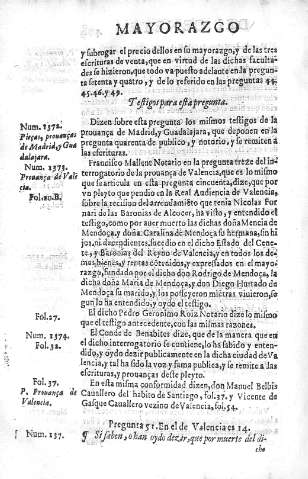 MAYORAZGO
y subrogar el precio dellos en su mayorazgo, y de las tres
escrituras de venta, que en virtud de las dichas faculta-
des se hizieron, que todo va puesto adelante en la pregun-
ta setenta y quatro, y de lo referido en las preguntas 44.
45. 46. y 49.
Testigos para esta pregunta.
Num. 1372.
Pieças, prouanças
de Madrid, y Gua
dalajara.
Dizen sobre esta pregunta los mismos testigos de la
prouança de Madrid, y Guadalajara, que deponen en la
pregunta quarenta de publico, y notorio, y se remiten a
las escrituras.
Num. 1373.
Prouança de Valẽ
cia.
Fol. 20. B.
Francisco Mallent Notario en la pregunta treze del in-
terrogatorio de la prouança de Valencia, que es lo mismo
que se articula en esta pregunta cincuenta, dize, que por
vn pleyto que pendio en la Real Audiencia de Valencia,
sobre la recision del arrendamiento que tenia Nicolas For
nari de las Baronias de Alcocer, ha visto, y entendido el
testigo, como por auer muerto las dichas doña Mencia de
Mendoça, y doña Catalina de Mendoça su hermana, sin hi-
jos, ni decendientes, sucedio en el dicho Estado del Cene-
te, y Baronias del Reyno de Valencia, y en todos los de-
mas bienes, y rentas contenidos, y expressados en el mayo-
razgo, fundado por el dicho don Rodrigo de Mendoça, la
dicha doña Maria de Mendoça, y don Diego Hurtado de
Mendoça su marido, y los posseyeron miẽtras viuieron, se-
gun lo ha entendido, y oydo el testigo.
Fol. 27.
El dicho Pedro Geronimo Roiz Notario dize lo mismo
que el testigo antecedente, con las mismas razones.
Num. 1374.
Fol. 32.
El Conde de Benabites dize, que de la manera que en
el dicho interrogatorio se contiene, lo ha sabido, y enten-
dido, y oydo dezir publicamente en la dicha ciudad de Va-
lencia, y tal ha sido la voz y fama publica, y se remite a las
escrituras, y prouanças deste pleyto.
Fol. 37.
P. Prouança de
Valencia.
En esta misma conformidad dizen, don Manuel Belbis
Cauallero del habito de Santiago, fol. 37. y Vicente de
Gasque Cauallero vezino de Valencia, fol. 54.
Pregunta 51. En el de Valencia es 14.
¶ Num. 137.
¶ Si saben, o han oydo dezir, que por muerte del di-
cho